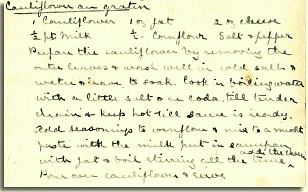 Cauliflower au gratin
1 Cauliflower 1 oz fat 2 oz cheese
½ pt milk ½ oz Cornflour Salt & pepper
Prepare the cauliflower by removing the
outer leaves & wash well in cold salt &
water & leave to soak. Cook in boiling water
with a little salt & soda, till tender
drain & keep hot till sauce is ready.
Add seasonings to cornflour & mix to a smooth
paste with the milk put in saucepan add the cheese
with fat & boil stirring all the time.
Pour over cauliflower & serve